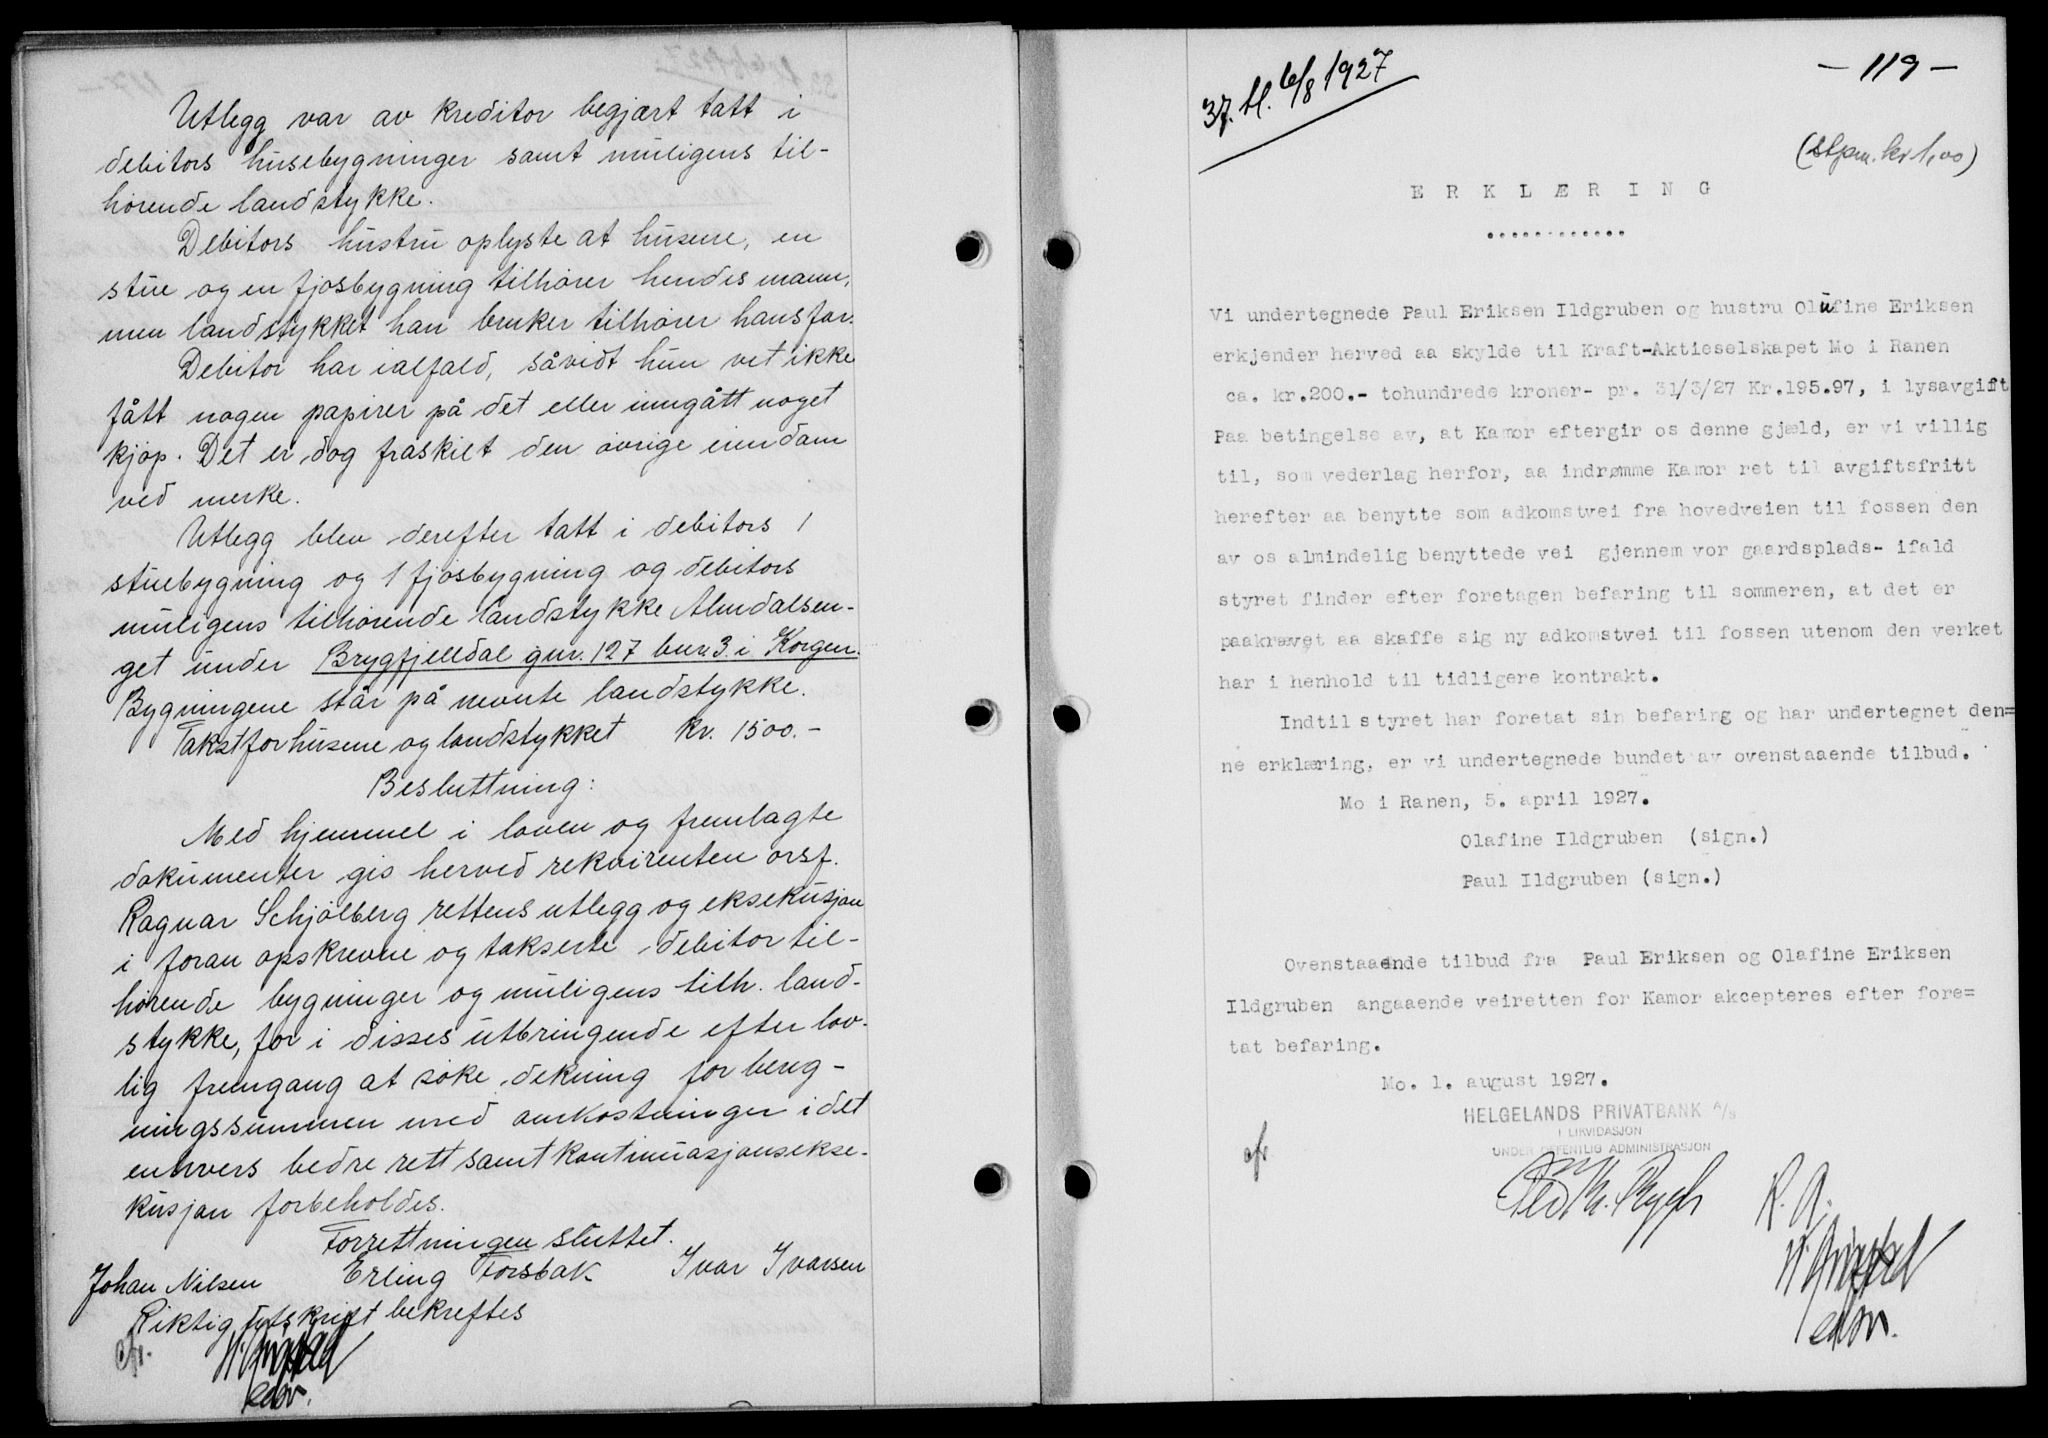 Utlegg var av kreditor begjært tatt i
debitors husebygninger samt muligens til-
hørende landstykke.
Debitors hustru oplyste at husene, en
stue og en fjøsbygning tilhører hendes mann,
men landstykket han bruker tilhører hans far.
Debitor har ialfald, såvidt hun vet ikke
fått nogen papirer på det eller inngått noget
kjøp. Det er dog fraskilt den øvrige eiendom
ved merke.
Utlegg blev derefter tatt i debitors 1
stuebygning og 1 fjøsbygning og debitors
muligens tilhørende landstykke Almdalsen-
get under Brygfjelldal gnr. 127 bnr. 3 i Korgen.
Bygningene står på nevnte landstykke.
Takst for husene og landstykket kr. 1500.-
Besluttning:
Med hjemmel i loven og fremlagte
dokumenter gis herved rekvirenten orsf.
Ragnar Schjölberg rettens utlegg og eksekusjon
i foran opskrevne og takserte debitor til-
hørende bygninger og muligens tilh. land-
stykke, for i disses utbringende efter lov-
lig fremgang at søke dekning for bereg-
ningssummen med omkostninger i det
enhvers bedre rett samt kontinuasjonsekse-
kusjon forbeholdes.
Forrettningen sluttet.
Johan Nilsen Erling Forsbak Ivar Ivarsen
Riktig utskrift bekreftes
cfr.
edsv.
37. bl. 6/8 1927
- 119 -
(Stpm. kr 1,00)
E R K L Æ R I N G
............
Vi undertegnede Paul Eriksen Ildgruben og hustru Olufine Eriksen
erkjender herved aa skylde til Kraft-Aktieselskapet Mo i Ranen
ca. kr.200.- tohundrede kroner- pr. 31/3/27 Kr.195.97, i lysavgift
Paa betingelse av, at Kamor eftergir os denne gjæld, er vi villig
til, som vederlag herfor, aa indrømme Kamor ret til avgiftsfritt
herefter aa benytte som adkomstvei fra hovedveien til fossen den
av os almindelig benyttede vei gjennem vor gaardsplads- ifald
styret finder efter foretagen befaring til sommeren, at det er
paakrævet aa skaffe sig ny adkomstvei til fossen utenom den verket
har i henhold til tidligere kontrakt.
Indtil styret har foretat sin befaring og har undertegnet den=
ne erklæring, er vi undertegnede bundet av ovenstaaende tilbud.
Mo i Ranen, 5. april 1927.
Olafine Ildgruben (sign.)
Paul Ildgruben (sign.)
Ovenstaaende tilbud fra Paul Eriksen og Olafine Eriksen
Ildgruben angaaende veiretten for Kamor akcepteres efter fore=
tat befaring.
Mo. 1. august 1927.
HELGELANDS PRIVATBANK A/S
I LIKVIDASJON
UNDER OFFENTLIG ADMINISTRASJON
cfr
R. A.
edsv.